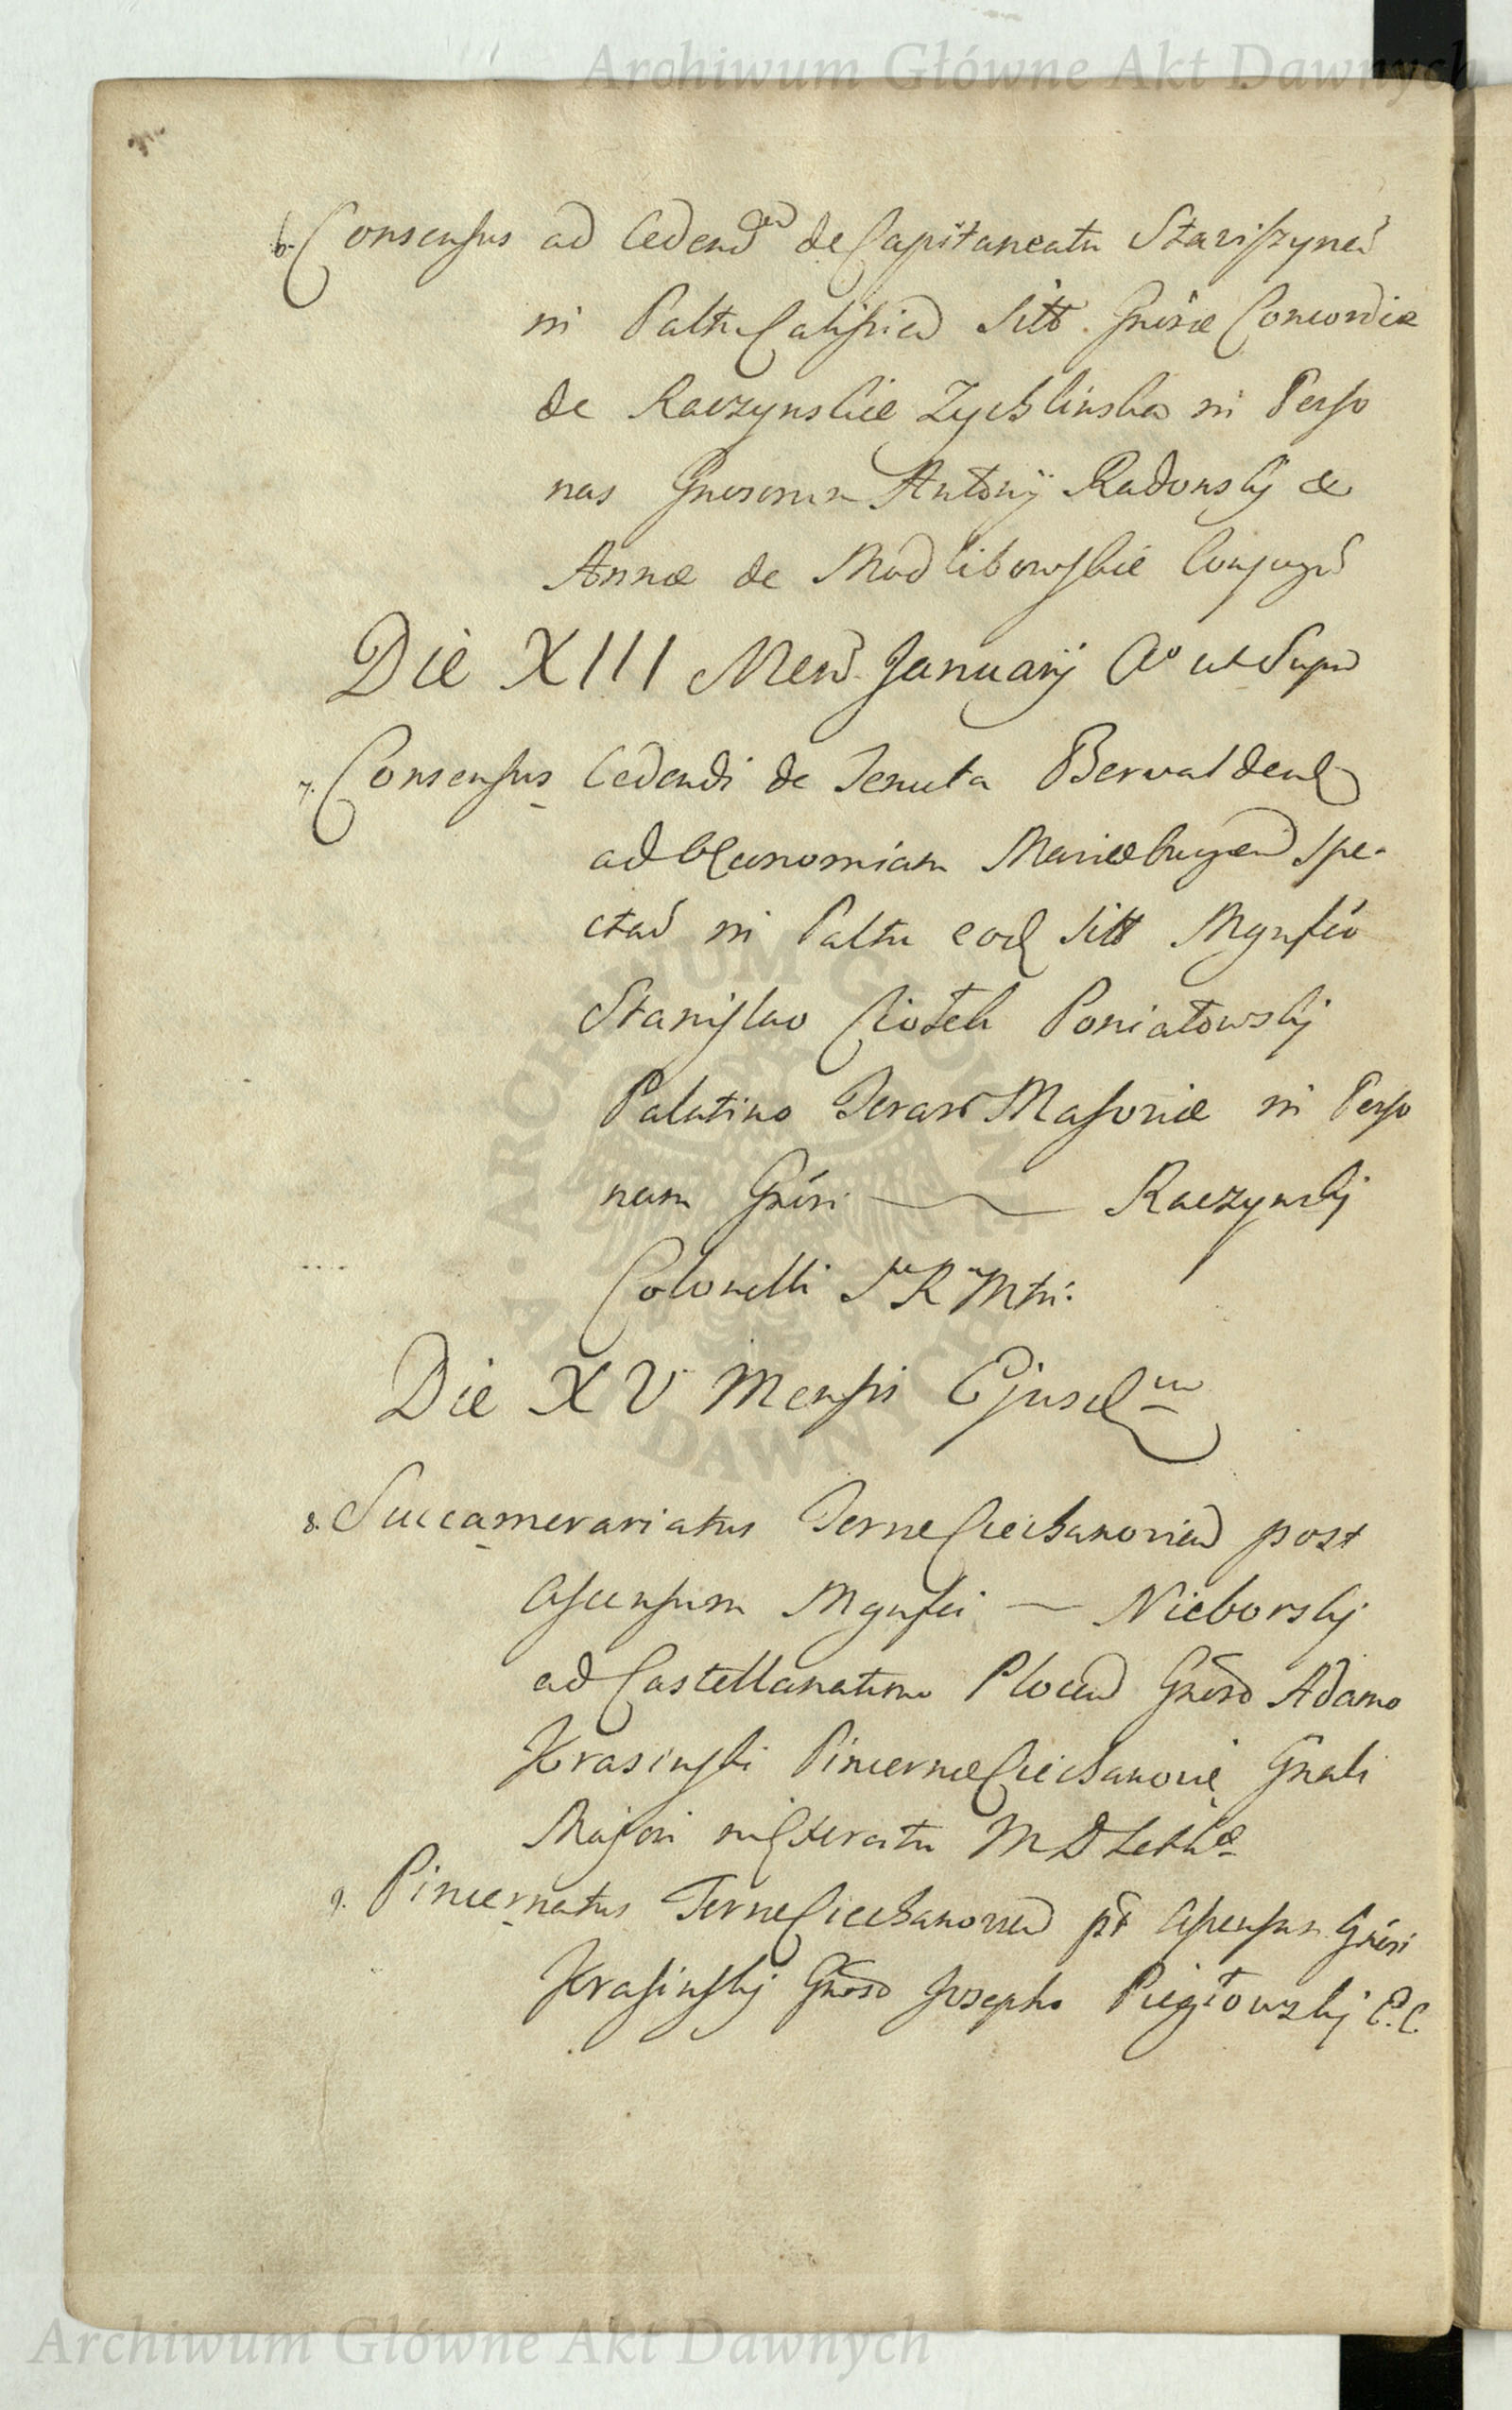 Archiwum Główne Akt Dawnych
6. Consensus ad Cedend de Capitaneatu Stariszyneń
in Palttu Calisien Sitt. Gnosæ Concordiæ
de Raczynskie Zychlinska in Perso
nas Gnosorum Antonij Radonskij &
Annæ de Modlibowskie Conjugu
Die XIII Mens. Januarij Ao ut Supra
7. Consensus Cedendi de Tenuta Berwaldens
ad Œconomiam Mariæburgen spe-
ctan in Palttu eod Sitt Mgnfco
Stanislao Ciołek Poniatowskij
Palatino Terarum Masoviæ in Perso
nam Gnosi Raczynskij
Colonelli S R Mtis:
Die XV Mensis Ejusdem
8. Succamerariatus Terræ Ciechanovien post
Ascensum Mgnfci Nieborskij
ad Castellanatum Plocen Gnoso Adamo
Krasinski Pincernæ Ciechanovie Gnali
Majori in Exercitu M D Lithæ
9. Pincernatus Terræ Ciechanovien pt Ascensum Gnosi
Krasinskij Gnoso Josepho Piegłowskij C. C.
ARCHIWUM GŁÓWNE
AKT DAWNYCH
Archiwum Główne Akt Dawnych